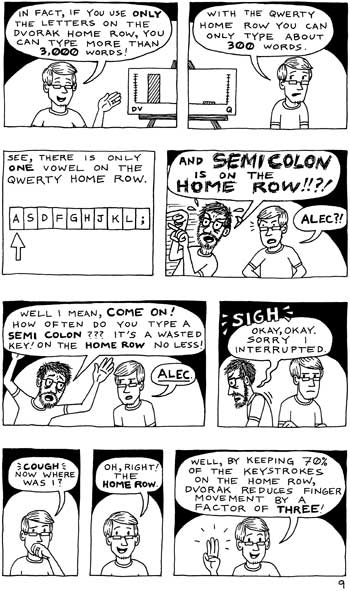 IN FACT, IF YOU USE ONLY
THE LETTERS ON THE
DVORAK HOME ROW, YOU
CAN TYPE MORE THAN
3,000 WORDS!
DV
Q
WITH THE QWERTY
HOME ROW YOU CAN
ONLY TYPE ABOUT
300 WORDS.
SEE, THERE IS ONLY
ONE VOWEL ON THE
QWERTY HOME ROW.
A S D F G H J K L ;
AND SEMICOLON
IS ON THE
HOME ROW!!?!
ALEC?!
WELL I MEAN, COME ON!
HOW OFTEN DO YOU TYPE A
SEMI COLON ??? IT'S A WASTED
KEY! ON THE HOME ROW NO LESS!
ALEC.
SIGH
OKAY, OKAY.
SORRY I
INTERRUPTED.
COUGH
NOW WHERE
WAS I?
OH, RIGHT!
THE
HOME ROW.
WELL, BY KEEPING 70%
OF THE KEYSTROKES
ON THE HOME ROW,
DVORAK REDUCES FINGER
MOVEMENT BY A
FACTOR OF THREE!
9